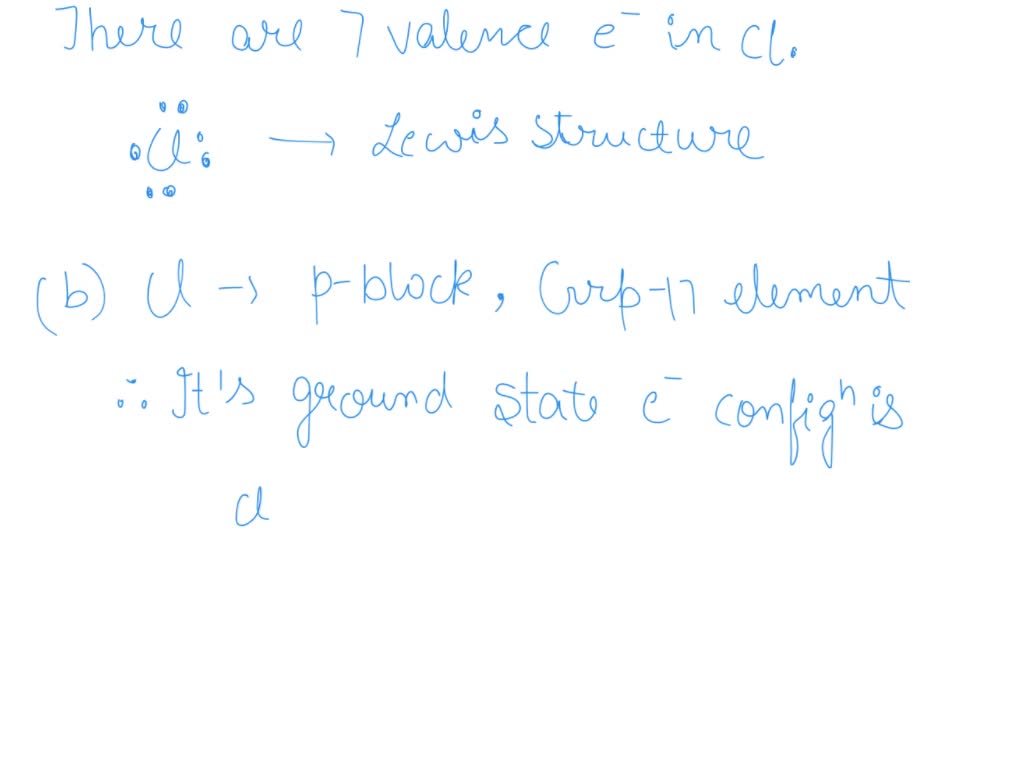 There are 7 valence e⁻ in Cl.
Cl → Lewis structure
(b) Cl → p-block, Grp-17 element
∴ It's ground state e⁻ configⁿ is
Cl